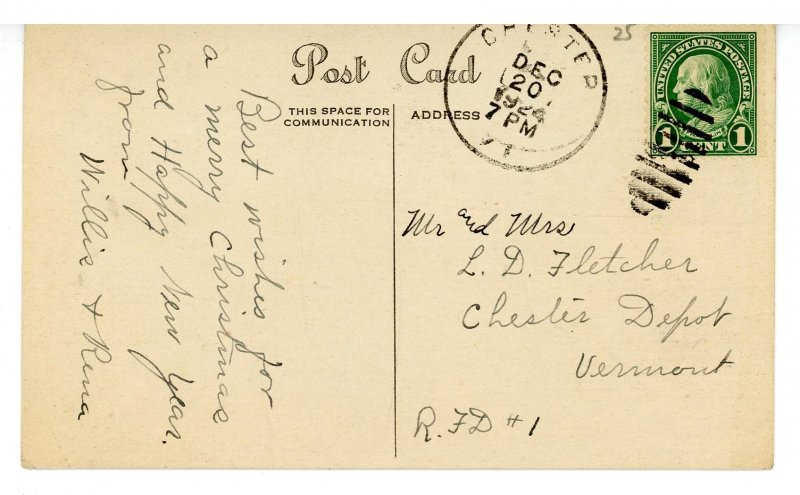 Post Card
THIS SPACE FOR
COMMUNICATION
ADDRESS
Best wishes for
a merry Christmas
and Happy New Year.
from
Willis & Rena
CHESTER
DEC
20
1924
7 PM
VT
25
UNITED STATES POSTAGE
1 CENT 1
Mr and Mrs
L. D. Fletcher
Chester Depot
Vermont
R.F.D #1